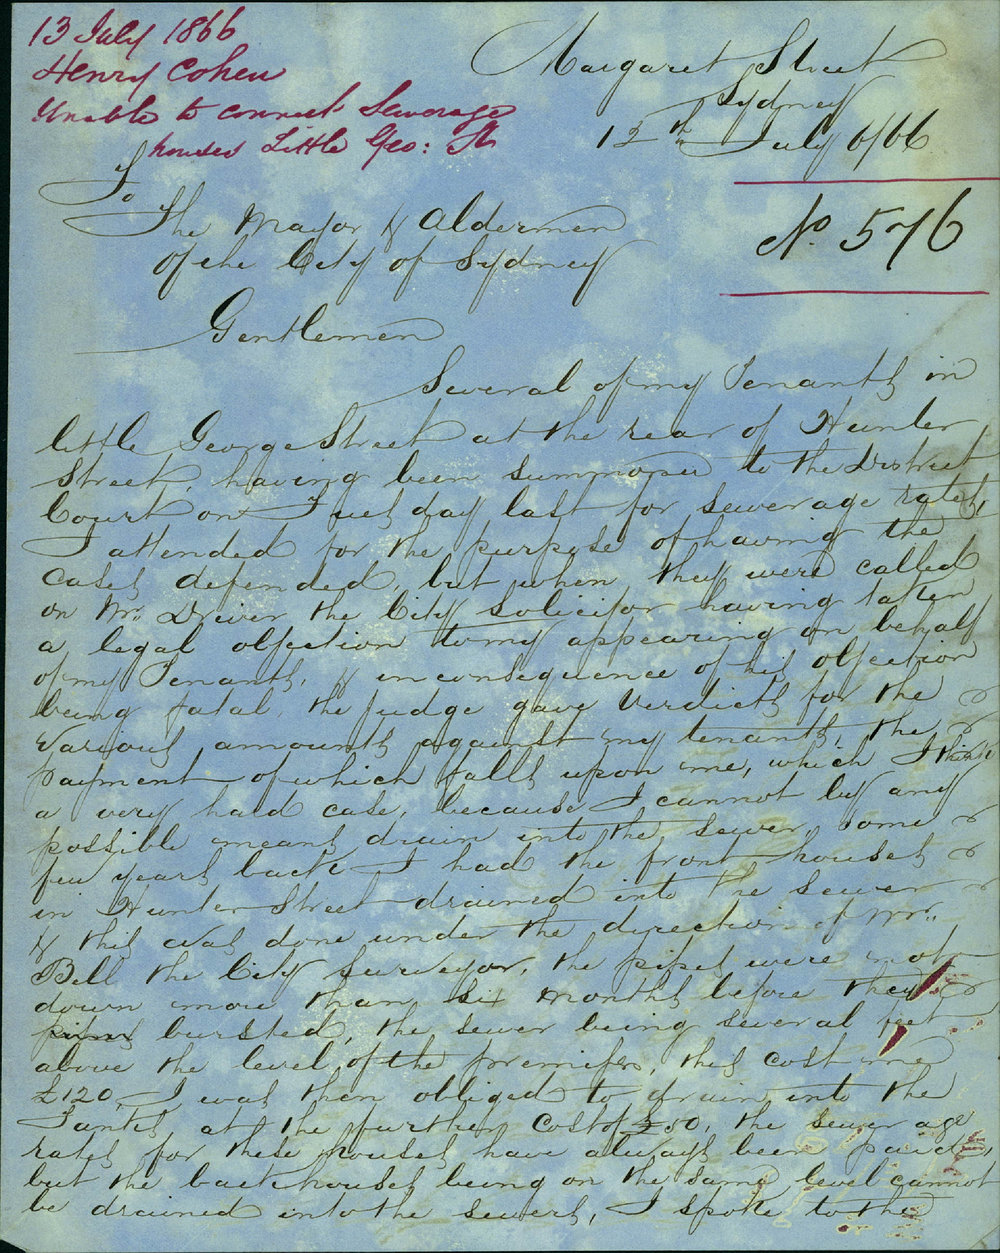 13 July 1866
Henry Cohen
Unable to connect Sewerage
houses Little Geo: St
Margaret Street
Sydney
12th July 6/66
No 576
To
The Mayor & Aldermen
of the City of Sydney
Gentlemen
Several of my Tenants in
little George Street at the rear of Hunter
Street, having been summoned to the District
Court on Tuesday last for sewerage rates,
I attended for the purpose of having the
cases defended, but when they were called
on Mr. Driver the City Solicitor having taken
a legal objection to my appearing on behalf
of my Tenants, & in consequence of his objection
being fatal, the judge gave Verdicts for the
various amounts against my tenants, the
payment of which falls upon me, which I think
a very hard case, because I cannot by any
possible means drain into the sewer, some
few years back I had the front houses
in Hunter Street drained into the sewer
& this was done under the direction of Mr.
Bell the City Surveyor, the pipes were not
down more than six months before they
bursted, the sewer being several feet
above the level of the premises, this cost me
£120, I was then obliged to drain into the
Tanks at the further cost of £50, the sewerage
rates for these houses have always been paid,
but the back houses being on the same level cannot
be drained into the sewers, I spoke to the